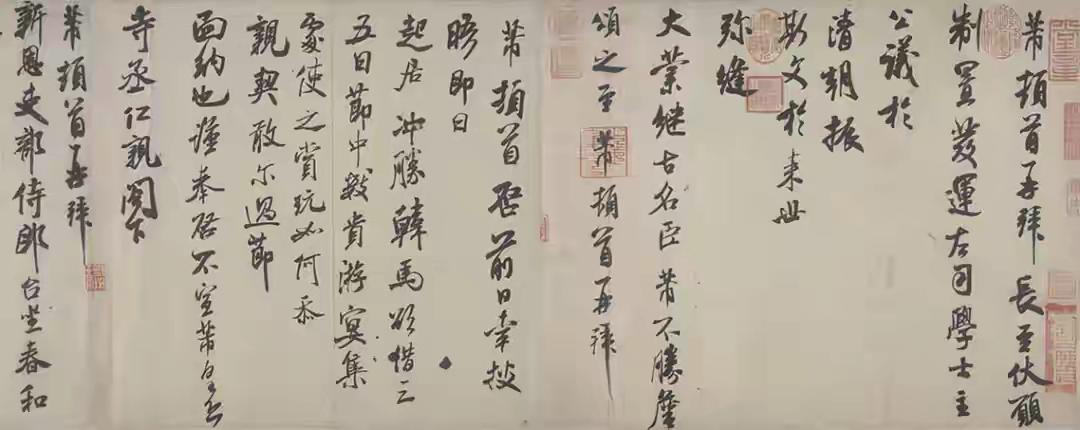 芾頓首再拜長至伏願
制置發運左司學士主
公議於
清朝振
斯文於来世
弥縫
大業继古名臣芾不勝詹
頌之至芾頓首再拜
芾頓首啓前日幸披
晤即日
起居冲勝韓馬欲借三
五日節中數貴游宴集
處使之賞玩如何忝
親契敢尔過節
面納也謹奉啓不宣芾皇恐
寺丞仁親閤下
芾頓首再拜
新恩吏部侍郎台坐春和